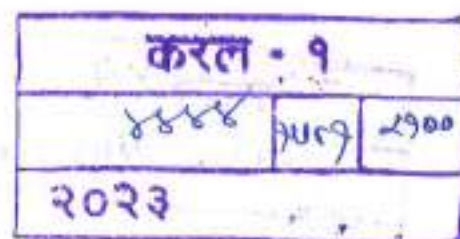 करल - १
४४४४ २१००
२०२३